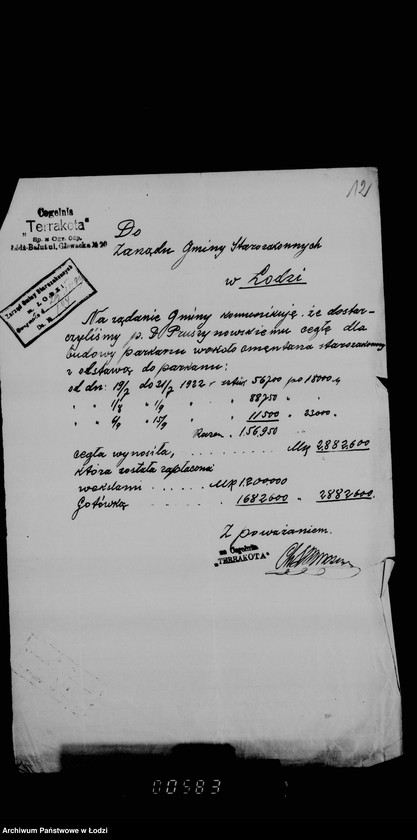 121
Cegielnia
„Terrakota"
Sp. z Ogr. Odp.
Łódź-Bałuty, ul. Głowacka № 20
Do
Zarządu Gminy Starozakonnych
w Łodzi
Zarząd Gminy Starozakonnych
m. Łodzi
Na rządanie Gminy komunikuję że dostar-
czyliśmy p. D. Pruszynowskiemu cegłę dla
budowy parkanu wokoło cmentarza starozakonnego
z odstawą do parkanu:
od dn: 19/7 do 31/7 1922 r sztuk 56700 po 18000
" " 1/8 " 1/9 " 88750 " "
" " 6/9 " 15/9 " 11500 " 23000.
Razem 156,950
cegła wynosiła, . . . . . . . . Mkp 2,882,600
która została zapłacona
wekslami . . . . . . Mkp 1.200000
Gotówką . . . . . 1682600 " 2882600.
Z poważaniem.
Cegielnia
„TERRAKOTA"
00583
Archiwum Państwowe w Łodzi